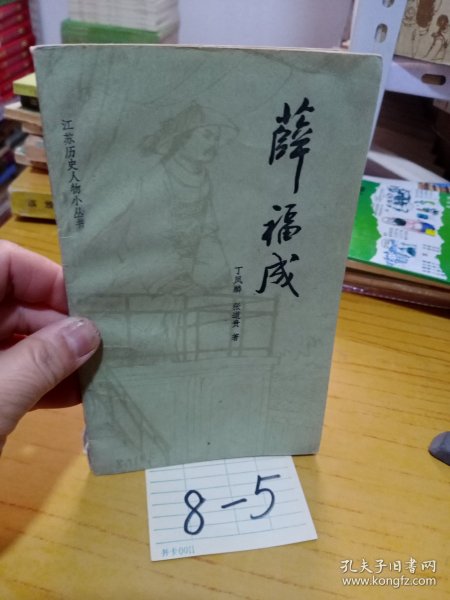 江苏历史人物小丛书
薛福成
丁凤麟 张道贵 著
8-5
孔夫子旧书网
www.kongfz.com